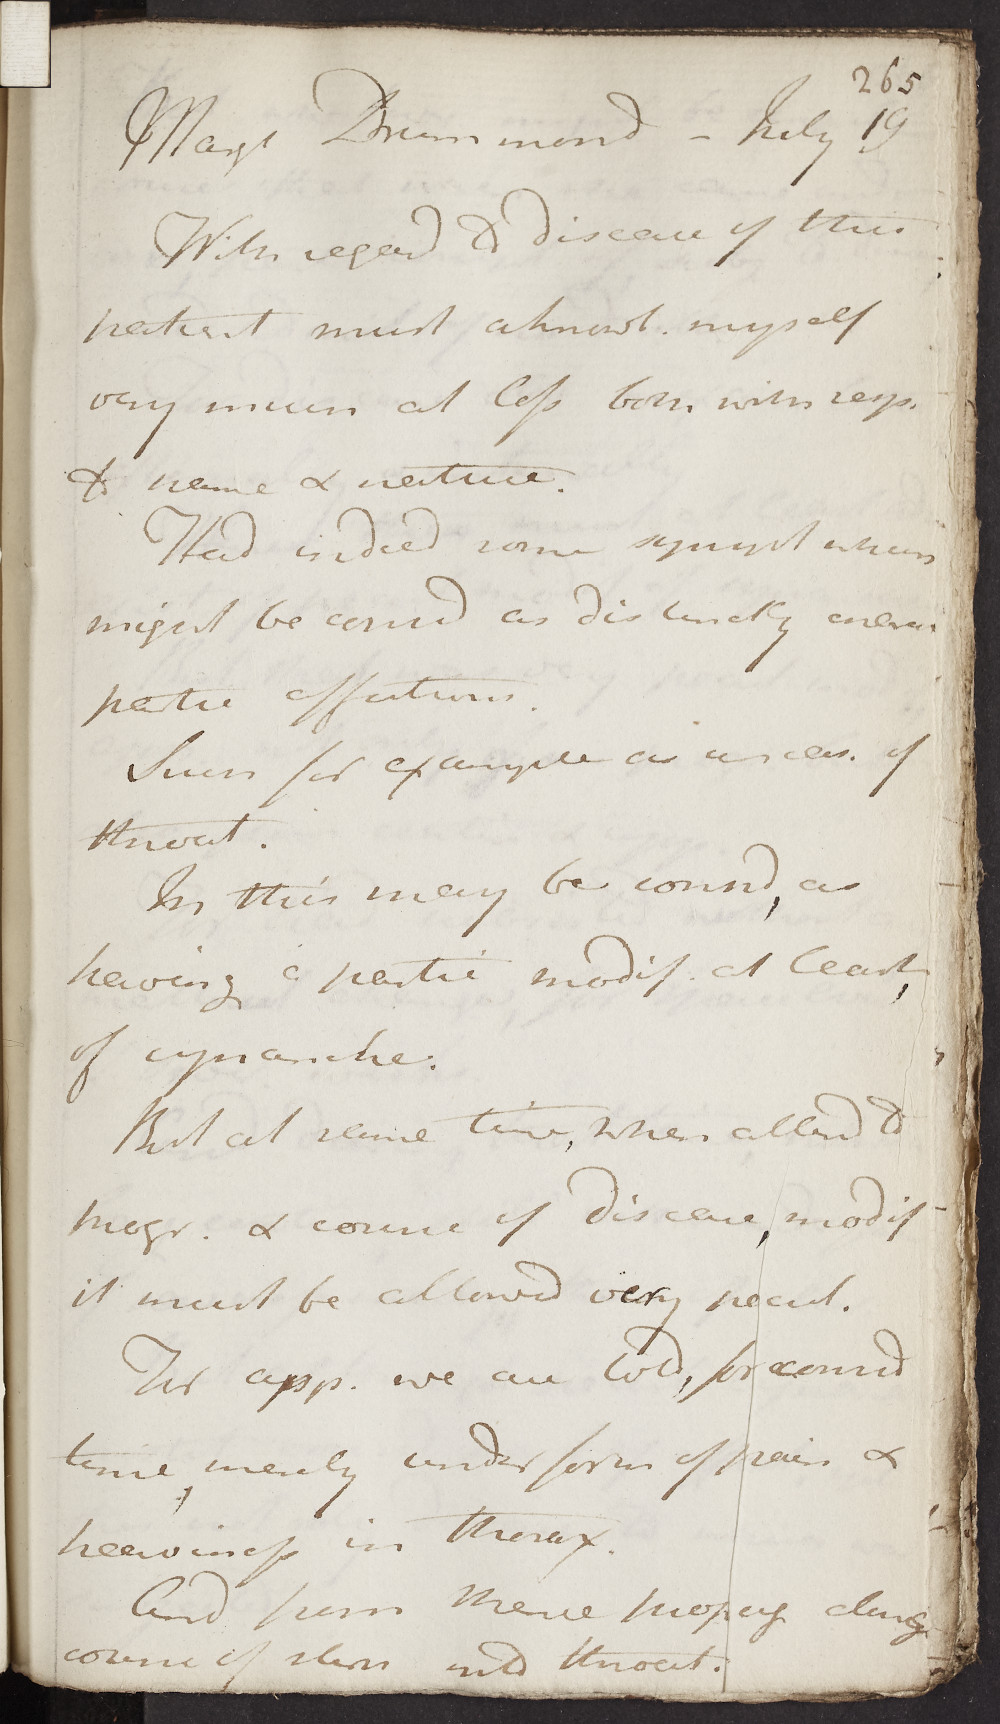 265
Margt Drummond - July 19
With regard to disease of this
patient must acknowl. myself
very much at loss both with resp.
to name & nature.
Had indeed some sympt which
might be consd as distinctly
partic affections.
Such for example as ulcer. of
throat.
In this may be consd, as
having a partic modif. at least,
of cynanche.
But at same time, when attend to
progr. & course of disease, modif
it must be allowed very pecul.
1st app. we are told, for consid
time, merely under form of pain &
heaviness in thorax.
And from thence propag along
course of stern into throat.